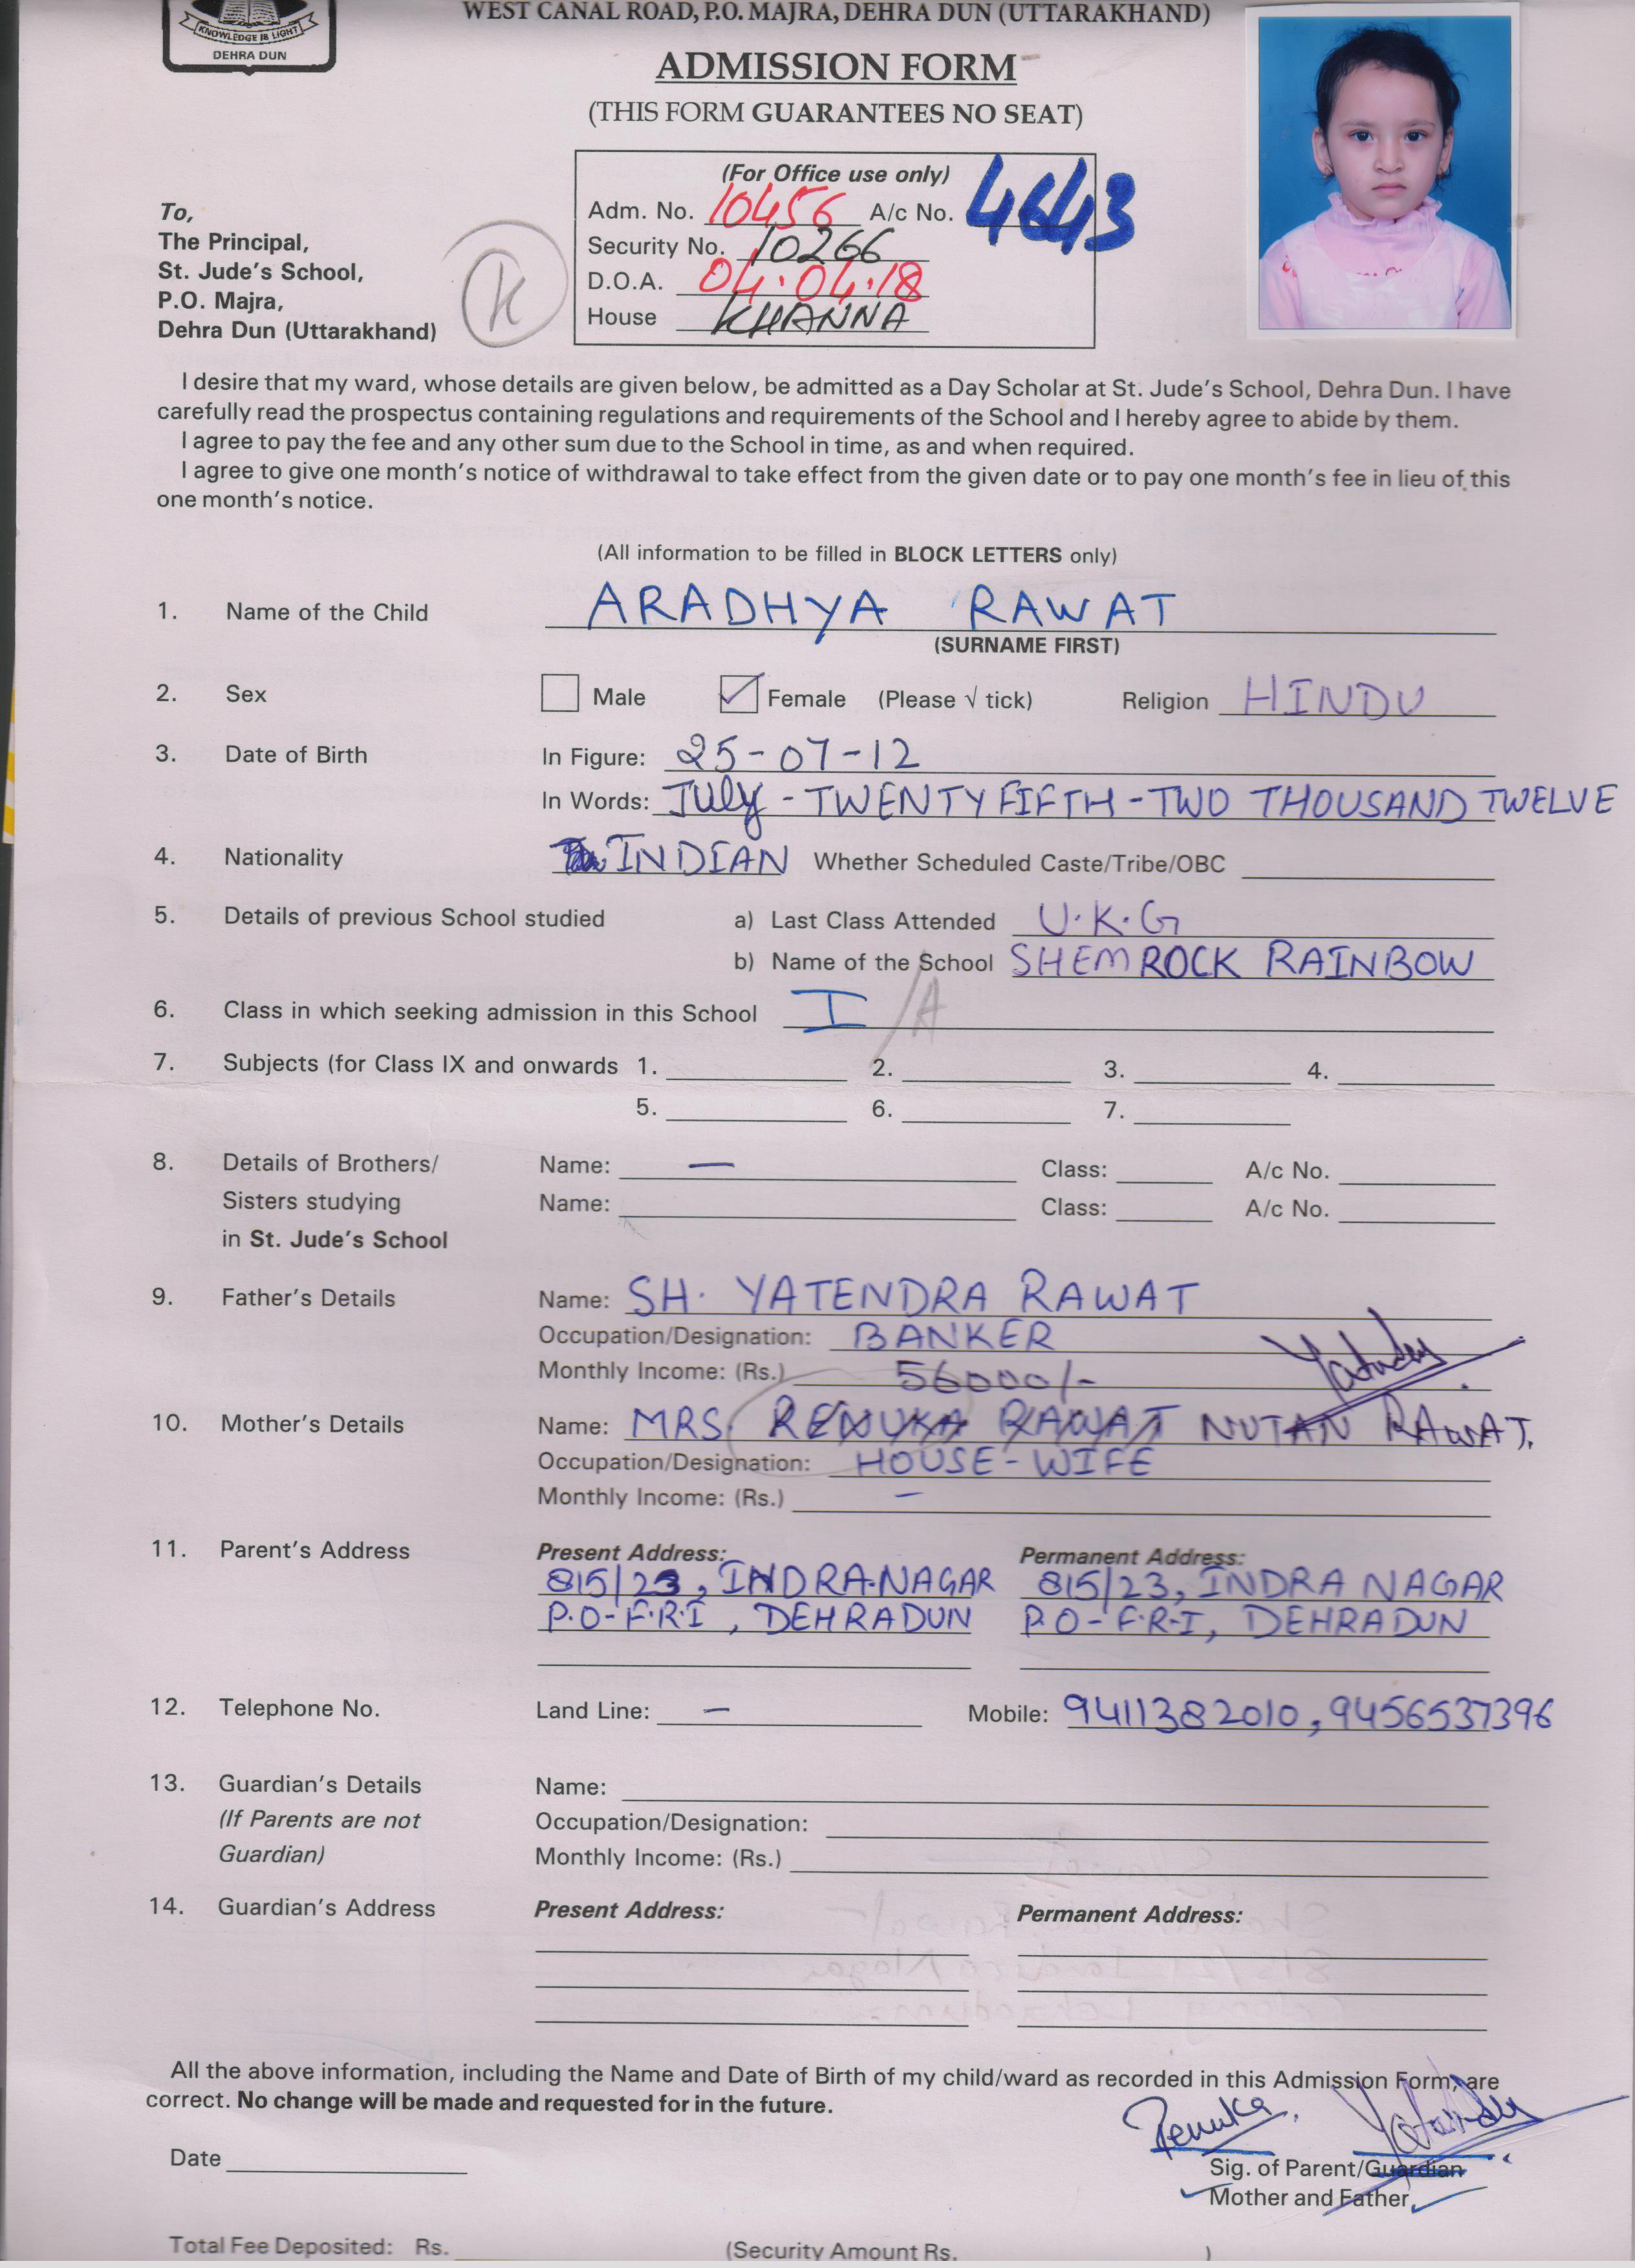 KNOWLEDGE IS LIGHT
DEHRA DUN
WEST CANAL ROAD, P.O. MAJRA, DEHRA DUN (UTTARAKHAND)
ADMISSION FORM
(THIS FORM GUARANTEES NO SEAT)
(For Office use only)
Adm. No. 10456 A/c No. 4643
Security No. 10266
D.O.A. 04.04.18
House KHANNA
To,
The Principal,
St. Jude's School,
P.O. Majra,
Dehra Dun (Uttarakhand)
K
I desire that my ward, whose details are given below, be admitted as a Day Scholar at St. Jude's School, Dehra Dun. I have
carefully read the prospectus containing regulations and requirements of the School and I hereby agree to abide by them.
I agree to pay the fee and any other sum due to the School in time, as and when required.
I agree to give one month's notice of withdrawal to take effect from the given date or to pay one month's fee in lieu of this
one month's notice.
(All information to be filled in BLOCK LETTERS only)
1. Name of the Child ARADHYA RAWAT
(SURNAME FIRST)
2. Sex Male Female (Please √ tick) Religion HINDU
3. Date of Birth In Figure: 25-07-12
In Words: July - TWENTY FIFTH - TWO THOUSAND TWELVE
4. Nationality INDIAN Whether Scheduled Caste/Tribe/OBC
5. Details of previous School studied a) Last Class Attended U.K.G
b) Name of the School SHEMROCK RAINBOW
6. Class in which seeking admission in this School I /A
7. Subjects (for Class IX and onwards 1. 2. 3. 4.
5. 6. 7.
8. Details of Brothers/ Name: — Class: A/c No.
Sisters studying Name: Class: A/c No.
in St. Jude's School
9. Father's Details Name: SH. YATENDRA RAWAT
Occupation/Designation: BANKER
Monthly Income: (Rs.) 56000/-
10. Mother's Details Name: MRS. RENUKA RAWAT NUTAN RAWAT.
Occupation/Designation: HOUSE-WIFE
Monthly Income: (Rs.) —
11. Parent's Address Present Address: Permanent Address:
815/23, INDRA NAGAR 815/23, INDRA NAGAR
P.O-F.R.I, DEHRADUN P.O-F.R.I, DEHRADUN
12. Telephone No. Land Line: — Mobile: 9411382010, 9456537396
13. Guardian's Details Name:
(If Parents are not Occupation/Designation:
Guardian) Monthly Income: (Rs.)
14. Guardian's Address Present Address: Permanent Address:
All the above information, including the Name and Date of Birth of my child/ward as recorded in this Admission Form, are
correct. No change will be made and requested for in the future.
Renuka.
Date
Sig. of Parent/Guardian
Mother and Father
Total Fee Deposited: Rs. (Security Amount Rs. )